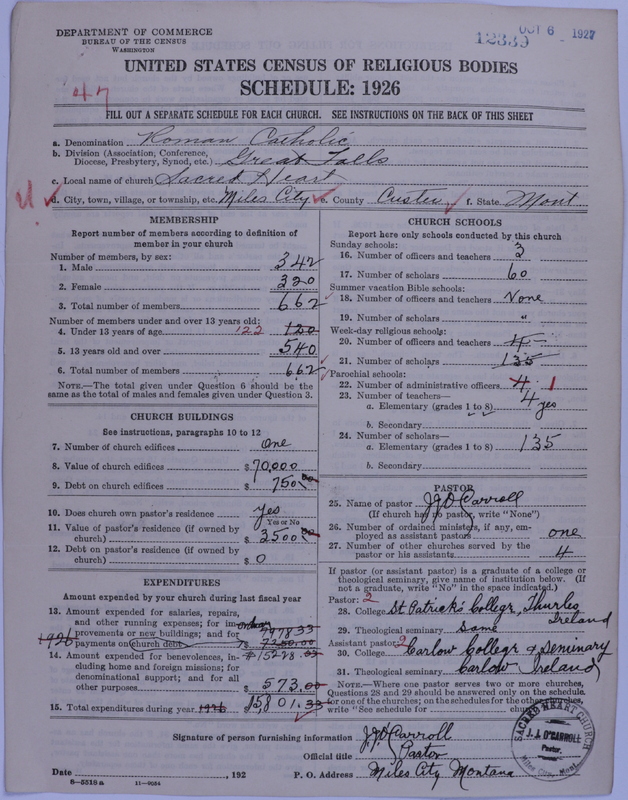 DEPARTMENT OF COMMERCE
BUREAU OF THE CENSUS
WASHINGTON
12339
OCT 6 - 1927
UNITED STATES CENSUS OF RELIGIOUS BODIES
SCHEDULE: 1926
47
FILL OUT A SEPARATE SCHEDULE FOR EACH CHURCH. SEE INSTRUCTIONS ON THE BACK OF THIS SHEET
a. Denomination Roman Catholic
b. Division (Association, Conference, Diocese, Presbytery, Synod, etc.) Great Falls
c. Local name of church Sacred Heart
d. City, town, village, or township, etc. Miles City e. County Custer f. State Mont
MEMBERSHIP
Report number of members according to definition of
member in your church
Number of members, by sex:
1. Male 342
2. Female 320
3. Total number of members 662
Number of members under and over 13 years old:
4. Under 13 years of age 122 120
5. 13 years old and over 540
6. Total number of members 662
NOTE.—The total given under Question 6 should be
same as the total of males and females given under Question 3.
CHURCH BUILDINGS
See instructions, paragraphs 10 to 12
7. Number of church edifices one
8. Value of church edifices $ 70,000
9. Debt on church edifices $ 750 00
10. Does church own pastor's residence yes
Yes or No
11. Value of pastor's residence (if owned by
church) $ 3500 00
12. Debt on pastor's residence (if owned by
church) $ 0
EXPENDITURES
Amount expended by your church during last fiscal year
13. Amount expended for salaries, repairs,
and other running expenses; for im-
provements or new buildings; and for
payments on church debt
1926
14. Amount expended for benevolences, in-
cluding home and foreign missions; for
denominational support; and for all
other purposes $ 573.00
15. Total expenditures during year 1926 15801.33
CHURCH SCHOOLS
Report here only schools conducted by this church
Sunday schools:
16. Number of officers and teachers 3
17. Number of scholars 60
Summer vacation Bible schools:
18. Number of officers and teachers None
19. Number of scholars "
Week-day religious schools:
20. Number of officers and teachers 4
21. Number of scholars 135
Parochial schools:
22. Number of administrative officers 4 1
23. Number of teachers—
a. Elementary (grades 1 to 8) 4 yes
b. Secondary
24. Number of scholars—
a. Elementary (grades 1 to 8) 135
b. Secondary
PASTOR
25. Name of pastor J J O'Carroll
(If church has no pastor, write "None")
26. Number of ordained ministers, if any, em-
ployed as assistant pastors one
27. Number of other churches served by the
pastor or his assistants 4
If pastor (or assistant pastor) is a graduate of a college or
theological seminary, give name of institution below. (If
not a graduate, write "No" in the space indicated.)
Pastor: 2
28. College St Patrick's College, Thurles
Ireland
29. Theological seminary Same
Assistant pastor: 2
30. College Carlow College & Seminary
31. Theological seminary Carlow Ireland
NOTE.—Where one pastor serves two or more churches,
Questions 28 and 29 should be answered only on the schedule
for one of the churches; on the schedules for the other churches,
write "See schedule for church
Signature of person furnishing information J J O'Carroll
Official title Pastor
Date , 192 P. O. Address Miles City Montana
8-5518 a 11-9054
SACRED HEART CHURCH
J. J. O'CARROLL
Pastor.
Miles City, Mont.